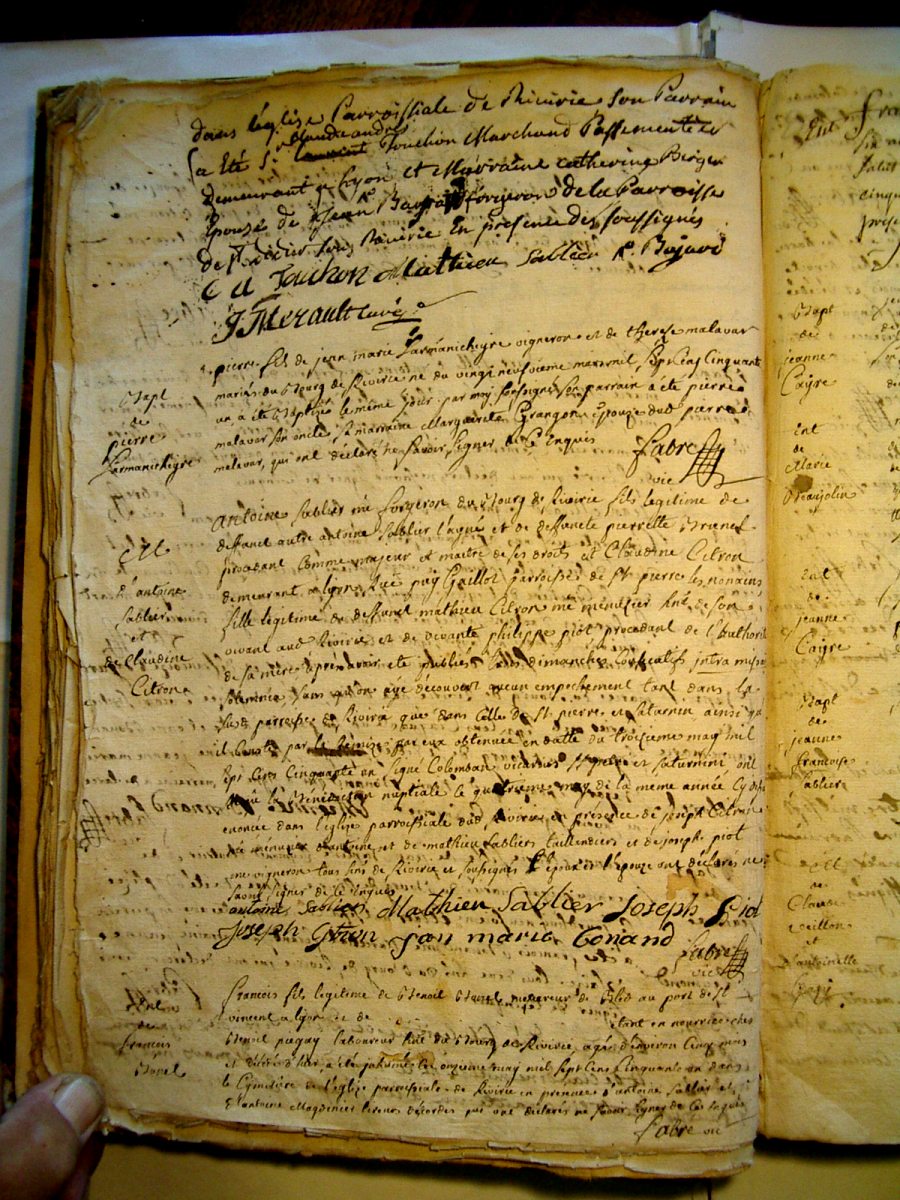 dans l'église Parroissiale de Riverie Son Parrain
claudeandré
a été Sr Touchon Marchand Passementier
demeurant à Lyon et Marraine catherine Berger
Epouse de Jean forgeron de la Parroisse
de St Didier sous Riverie En présence des soussignés
C A Touchon Mathieu Sablier
J Merault curé
Bapt
de
pierre
Larmanichegre
pierre fils de jean marie Larmanichegre vigneron et de therese malavar
mariés du Bourg de Riverie né du vingt neufvieme mars mil sept cens cinquante
un a été Baptisé le même jour par moy soussigné son parrain a été pierre
malavar son oncle, sa marraine Marguerite Grangon Epouze dud pierre
malavar, qui ont déclaré ne savoir signer de ce Enquis
fabre
vic
M
d'antoine
Sablier
et
de Claudine
Citron
antoine Sablier me forgeron du Bourg de Riverie fils legitime de
deffunct autre antoine Sablier l'agné et de deffuncte pierrette
procedant comme majeur et maitre de ses droits et Claudine Citron
demeurant a lyon Rue puy Gaillot parroisse de St pierre les nonains
fille legitime de deffunct mathieu Citron me menuzier de son
vivant aud Riverie et de vivante philippe piot procedant de l'authorité
de sa mere apres avoir été publiés trois dimanches consecutifs intra missar
solemnia sans qu'on aÿe découvert aucun empechement tant dans la
susd parroisse de Riverie que dans celle de St pierre et Saturnin ainsi qu
il Conste par la Remise par eux obtenue en datte du troizieme may mil
sept cens cinquante un signé Colomban vicarius Sti petri et saturnini ont
Reçu la Bénédiction nuptiale le quatrieme may de la meme année cy dessus
enoncée dans l'église parroissiale dud Riverie en présence de joseph Citron
me menuzier d'antoine et de mathieu Sabliers taillandiers et de joseph piot
vigneron tous de Riverie et soussignés l'epoux et l'Epouze ont déclarés ne
savoir signer de ce Enquis
antoine Sablier Mathieu Sablier Joseph Piot
Joseph Citron jan marie Conand
fabre
vic
Ent
de
francois
Borel
francois fils legitime de Benoit Borel mesureur de Bled au port de St
vincent a lyon et de étant en nourrice chez
Benoit laboureur du Bourg de Riverie agé d'environ cinq mois
et décédé d'hier a été inhumé le onzieme may mil sept cens cinquante un dans
le Cymetière de l'église parroissiale de Riverie en présence d'antoine Sablier et
d'antoine qui ont déclarés ne savoir signer de ce Enquis
fabre vic
Ent
Bapt
de
jeanne
Cayre
Ent
de
Marie
Beaujolin
Ent
de
jeanne
Cayre
Bapt
de
jeanne
francoise
Sablier
M
de
Claude
et
d'antoinette